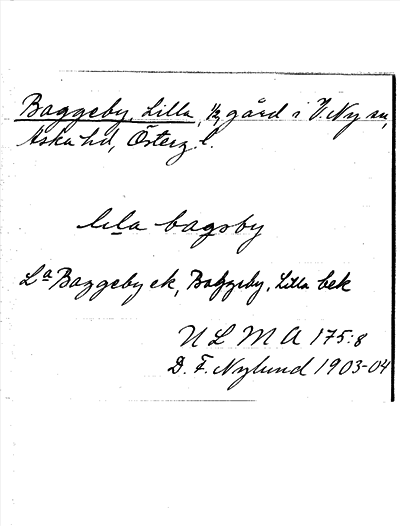 Baggeby, Lilla, 1/2 gård i V. Ny sn,
Aska hd, Österg. l.
lila bagsby
La Baggeby ek, Baggeby, Lilla bek
U L M A 175:8
D. F. Nylund 1903-04